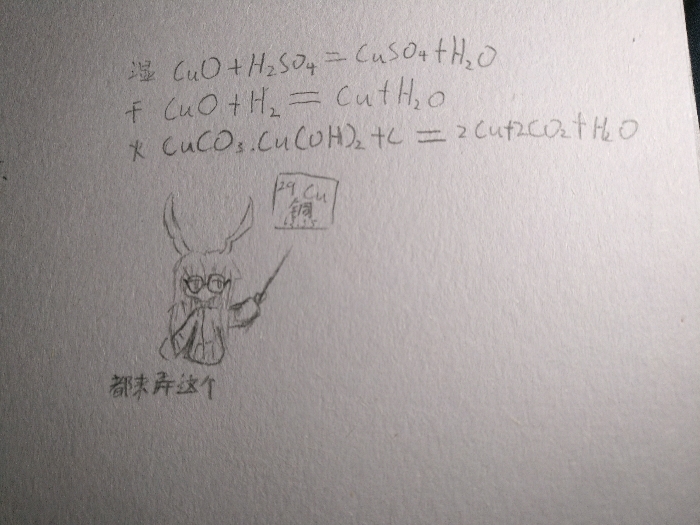 湿 CuO+H₂SO₄=CuSO₄+H₂O
干 CuO+H₂=Cu+H₂O
火 CuCO₃.Cu(OH)₂+C=2Cu+2CO₂+H₂O
29 Cu
銅
都来弄这个